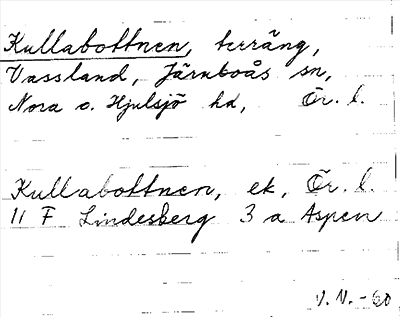 Kullabottnen, terräng,
Vassland, Järnboås sn,
Nora o. Hjulsjö hd, Ör. l.
Kullabottnen, ek, Ör. l.
11 F Lindesberg 3 a Aspen
V. N. - 60